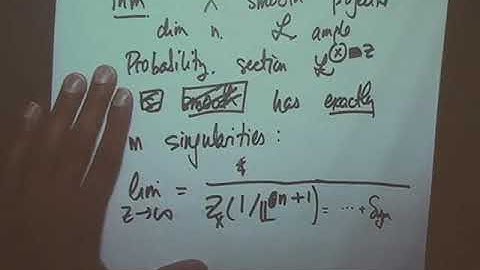 Thm X smooth projective
dim n. ℒ ample
Probability. section ℒ^{⊗ z}
has exactly
m singularities:
lim_{z→∞} = ──── / Z_X(1/𝕃^{n+1}) = ⋯